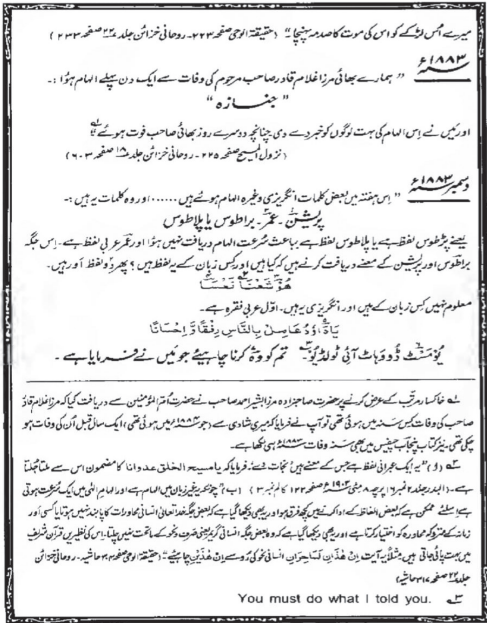 میرے اُس لڑکے کو اس کی موت کا صدمہ پہنچا۔“ (حقیقۃ الوحی صفحہ ۲۲۳۔ روحانی خزائن جلد ۲۲ صفحہ ۲۳۳)
۱۸۸۳ء ”ہمارے بھائی مرزا غلام قادر صاحب مرحوم کی وفات سے ایک دن پہلے الہام ہوا :۔
”جنازہ“
اور میں نے اِس الہام کی بہت لوگوں کو خبر دے دی چنانچہ دوسرے روز بھائی صاحب فوت ہوگئے“ ۱؎
(نزول المسیح صفحہ ۲۲۵۔ روحانی خزائن جلد ۱۸ صفحہ ۶۰۳)
دسمبر ۱۸۸۳ء ”اس ہفتہ میں بعض کلمات انگریزی وغیرہ الہام ہوئے ہیں ...... اور وہ کلمات یہ ہیں :۔
پریشن۔ عمر۔ براطوس یا پلاطوس
یعنے پڑطوس لفظ ہے یا پلاطوس لفظ ہے بباعث سُرعت الہام دریافت نہیں ہوا اور عمر عربی لفظ ہے۔ اِس جگہ
براطوس اور پریشن کے معنے دریافت کرنے ہیں کہ کیا ہیں اور کس زبان کے یہ لفظ ہیں؟ پھر دو لفظ اَور ہیں۔
ھُوَ شَعْنَا نَعْسًا ۲؎
معلوم نہیں کس زبان کے ہیں اور انگریزی یہ ہیں۔ اوّل عربی فقرہ ہے۔
یَا دَاوٗدُ عَامِلْ بِالنَّاسِ رِفْقًا وَّ اِحْسَانًا
یُومَسٹ ڈُو وہاٹ آئی ٹولڈ یُو۔ ۳؎ تم کو وہ کرنا چاہیئے جو میں نے فرمایا ہے۔
۱؎ خاکسار مرتّب کے عرض کرنے پر حضرت صاحبزادہ مرزا بشیر احمد صاحب نے حضرت اُمّ المؤمنین سے دریافت کیا کہ مرزا غلام قادر
صاحب کی وفات کس سنہ میں ہوئی تھی تو آپ نے فرمایا کہ میری شادی سے (جو ۱۸۸۴ء میں ہوئی تھی) ایک سال قبل اُن کی وفات ہو
چکی تھی۔ نیز کتاب پنجاب چیفس میں بھی سنہ وفات ۱۸۸۳ء ہی لکھا ہے۔
۲؎ (و) ”یہ ایک عبرانی لفظ ہے جس کے معنے ہیں نجات دے۔ فرمایا کہ یا مسیح الخلق عدوانا کا مضمون اس سے ملتا جُلتا
ہے۔ (البدر جلد ۲ نمبر ۱۶ پرچہ ۸ مئی ۱۹۰۳ء صفحہ ۱۲۲ کالم نمبر ۳) (ب) ”چونکہ یہ غیر زبان میں الہام ہے اور الہامِ الٰہی میں ایک سُرعت ہوتی
ہے اِسلئے ممکن ہے کہ بعض الفاظ کے ادا کرنے میں کچھ فرق ہو اور یہ بھی دیکھا گیا ہے کہ بعض جگہ خدا تعالیٰ انسانی محاورات کا پابند نہیں ہوتا یا کسی اَور
زمانہ کے متروکہ محاورہ کو اختیار کرتا ہے اور یہ بھی دیکھا گیا ہے کہ وہ بعض جگہ انسانی گریمر یعنی صرف و نحو کے ماتحت نہیں چلتا۔ اِس کی نظیریں قرآن شریف
میں بہت پائی جاتی ہیں مثلاً یہ آیت اِنْ ھٰذٰنِ لَسٰحِرَانِ انسانی نحو کی رُو سے اِنْ ھٰذَیْنِ چاہیئے“ (حقیقۃ الوحی صفحہ ۳۰۴ حاشیہ۔ روحانی خزائن
جلد ۲۲ صفحہ ۳۱۷ حاشیہ)
۳؎ You must do what I told you.